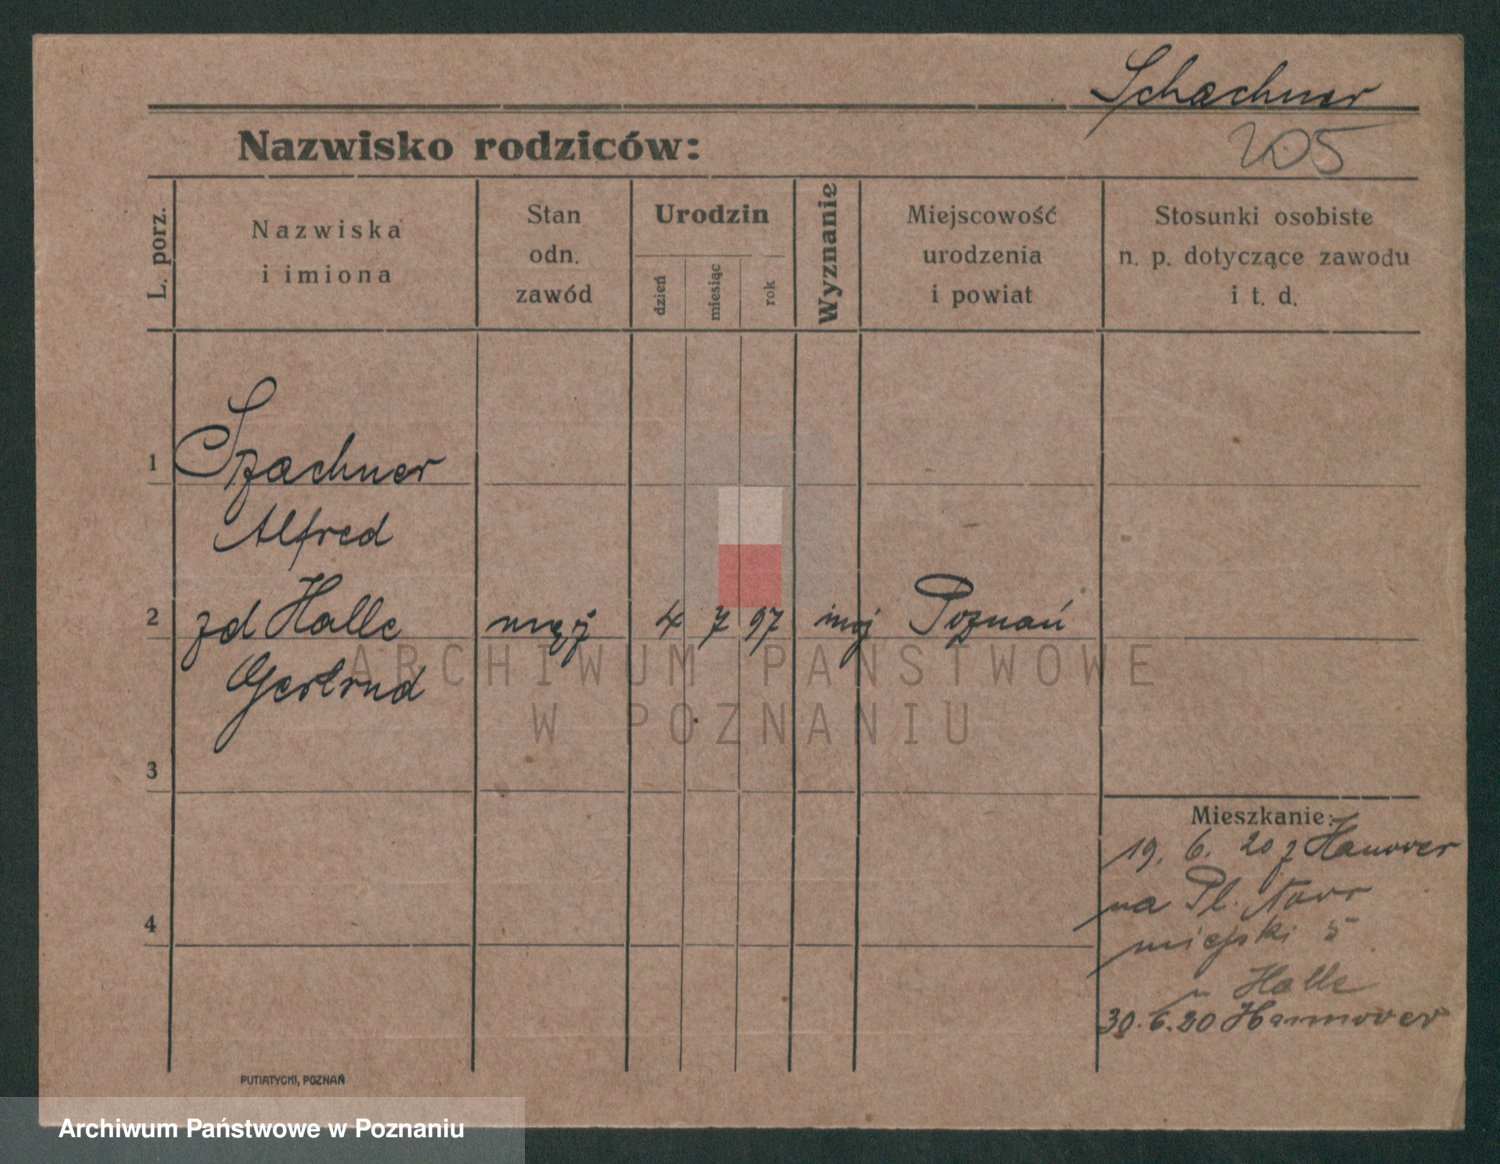 Schachner
Nazwisko rodziców:
205
L. porz.
Nazwiska
i imiona
Stan
odn.
zawód
Urodzin
dzień
miesiąc
rok
Wyznanie
Miejscowość
urodzenia
i powiat
Stosunki osobiste
n. p. dotyczące zawodu
i t. d.
1 Szachner
Alfred
2 zd Halle męż 4 7 97 moj Poznań
Gertrud
ARCHIWUM PAŃSTWOWE
W POZNANIU
3
Mieszkanie:
19. 6. 20 z Hanower
na Pl. Nowo
miejski 5
4
u Halle
30.6.20 Hannover
PUTIATYCKI, POZNAŃ
Archiwum Państwowe w Poznaniu